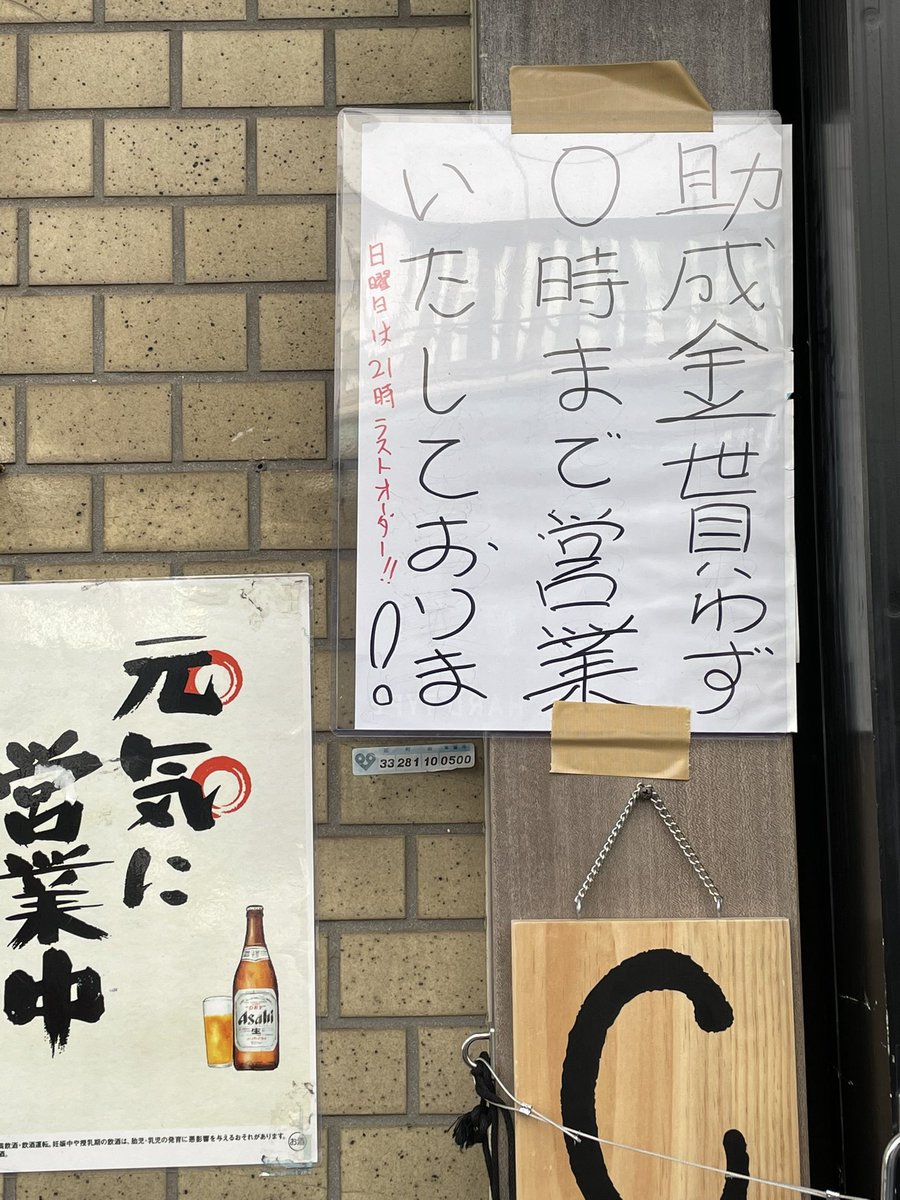 助成金貰わず
〇時まで営業
いたしておりま
!
日曜日は21時ラストオーダー!!
33 281 10 0500
元気に
営業中
DRY
Asahi
生
飲酒・飲酒運転。妊娠中や授乳期の飲酒は、胎児・乳児の発育に悪影響を与えるおそれがあります。
酒。
お酒